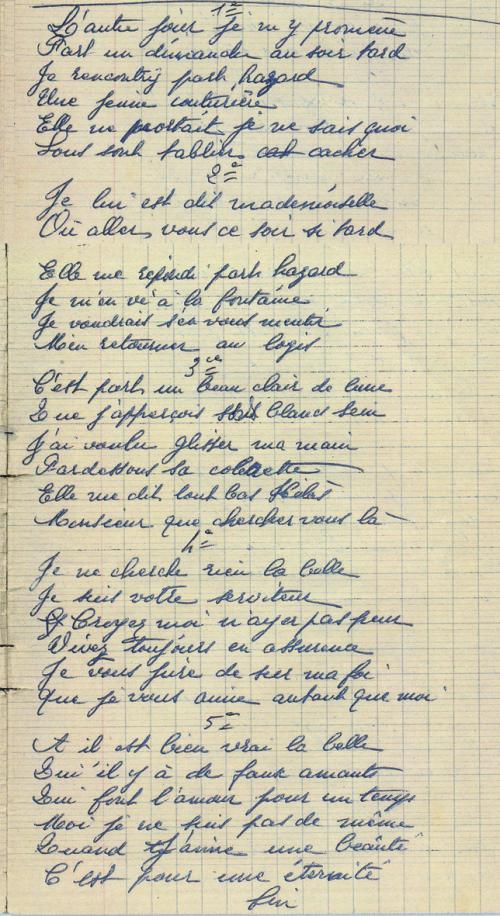 1e
L'autre jour je m'y promène
Part un dimanche au soir tard
Je rencontrij parh hazard
Une jeune couturière
Elle me portait je ne sais quoi
Sous sont tablier cacher
2e
Je lui est dit mademoiselle
Où aller vous ce soir si tard
Elle me repond parh hazard
Je m'en vé à la fontaine
Je voudrais s'en vous mentir
M'en retourner au logis
3e
C'est parh un beau clair de lune
Que j'apperçois blancs sein
J'ai voulu glisser ma main
Pardessous sa colerette
Elle me dit tout bas
Monsieur que chercher vous là
4e
Je ne cherche rien la belle
Je suis votre serviteur
Croyez moi n'ayer pas peur
Vivez toujours en assurance
Je vous jure de sur ma foi
Que je vous aime autant que moi
5e
A il est bien vrai la belle
Qui'il y à de faux amants
Qui font l'amour pour un temps
Moi je ne suis pas de même
Quand j'aime une beauté
C'est pour une éternité
Fin